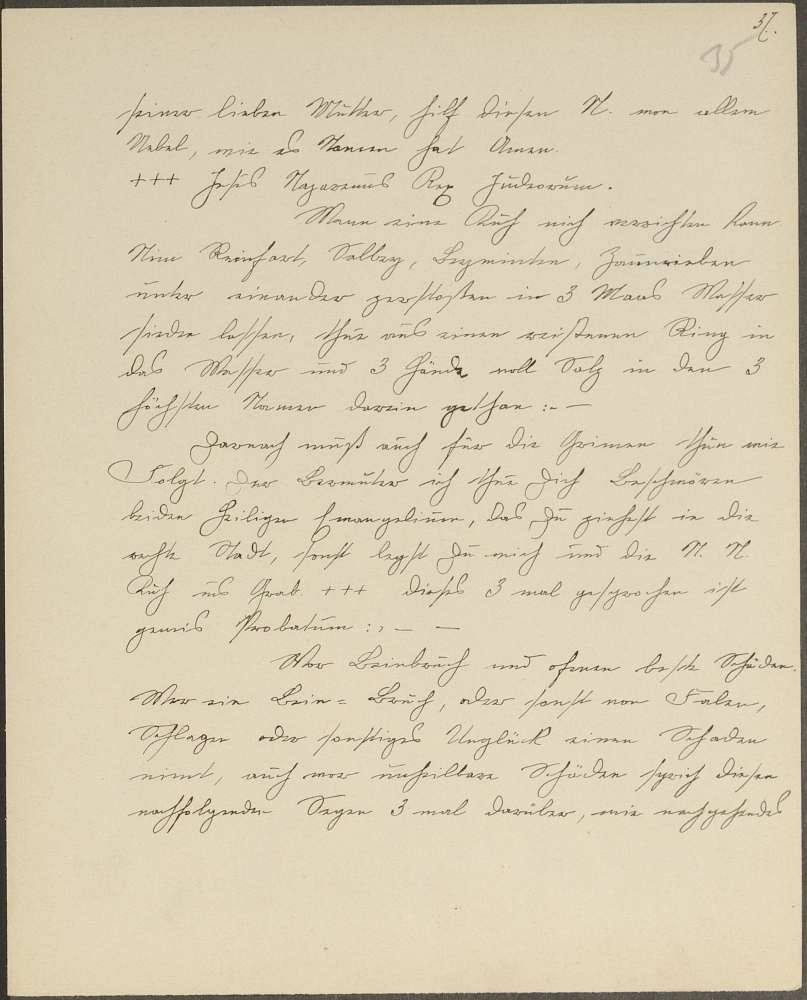 37.
35
seiner lieben Mutter, hilf diesen N. von allem
Uebel, wie es Namen hat Amen.
+++ Jesus Nazarenus Rex Judeorum.
Wann eine Kuh nich verrichten kann.
Nim Reinfart, Salbey, Beyminten, Zaunrieben
unter einander zerstoßen in 3 Maas Wasser
sieden lassen, thue aus einen Ring in
das Wasser und 3 Hände voll Salz in den 3
höchsten Namen darein gethan :- —
Darnach muß auch für die Grimen thun wie
Folgt. Der Bermuter ich thue Dich Beschwören
beiden Heiligen Evangelium, das Du ziehest in die
rechte Stadt, sonst legst Du mich und die N. N.
Kuh ins Grab. +++ dieses 3 mal gesprochen ist
gewis Probatum :, — —
Vor Beinbruch und ofenen Schäden.
Wer ein Bein = Bruch, oder sonst von Falen,
Schlagen oder sonstiges Unglück einen Schaden
nimt, auch vor unheilbare Schäden sprich diesen
nachfolgenden Segen 3 mal darüber, wie nachgehendes